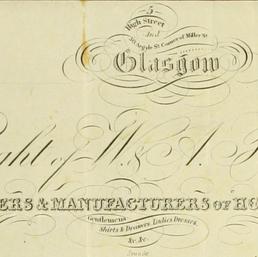 5
High Street
And
50 Argyle St. Corner of Miller St.
Glasgow
ght of W. & A.
ERS & MANUFACTURERS OF HO
Gentlemens
Shirts & Drawers, Ladies Dresses,
&c. &c.